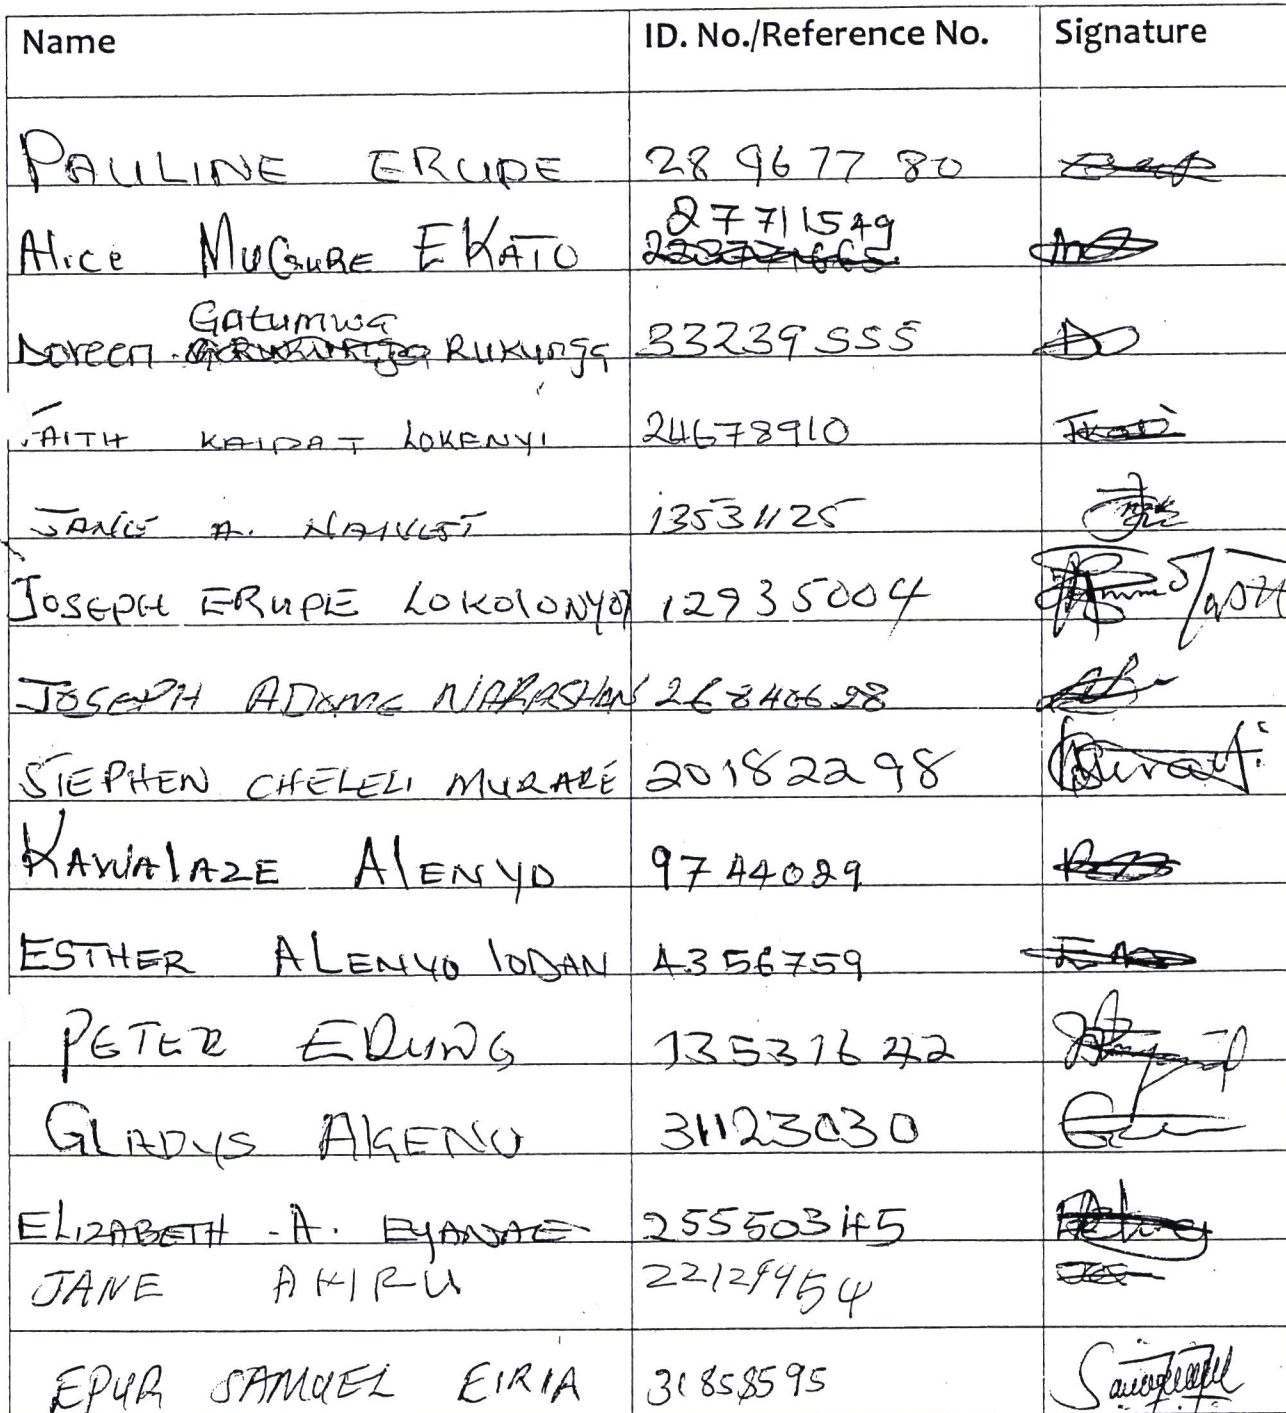 Name ID. No./Reference No. Signature
PAULINE ERUPE 28967780
27711549
Alice MUGURE EKATO
Gatumwa
Doreen RUKUNGA 33239555
FAITH LOKENYI 24678910
JANE A. 13531125
JOSEPH ERUPE LOKOLONYOI 12935004
JOSEPH ADOME 26840628
STEPHEN CHELELI MURARE 20182298
KAWALAZE ALENYO 9744029
ESTHER ALENYO LODAN 4356759
PETER EDUNG 13531622
GLADYS AKENO 31123030
ELIZABETH .A. EYANAE 25550345
JANE AKIRU 22129954
EPUR SAMUEL EIRIA 31858595